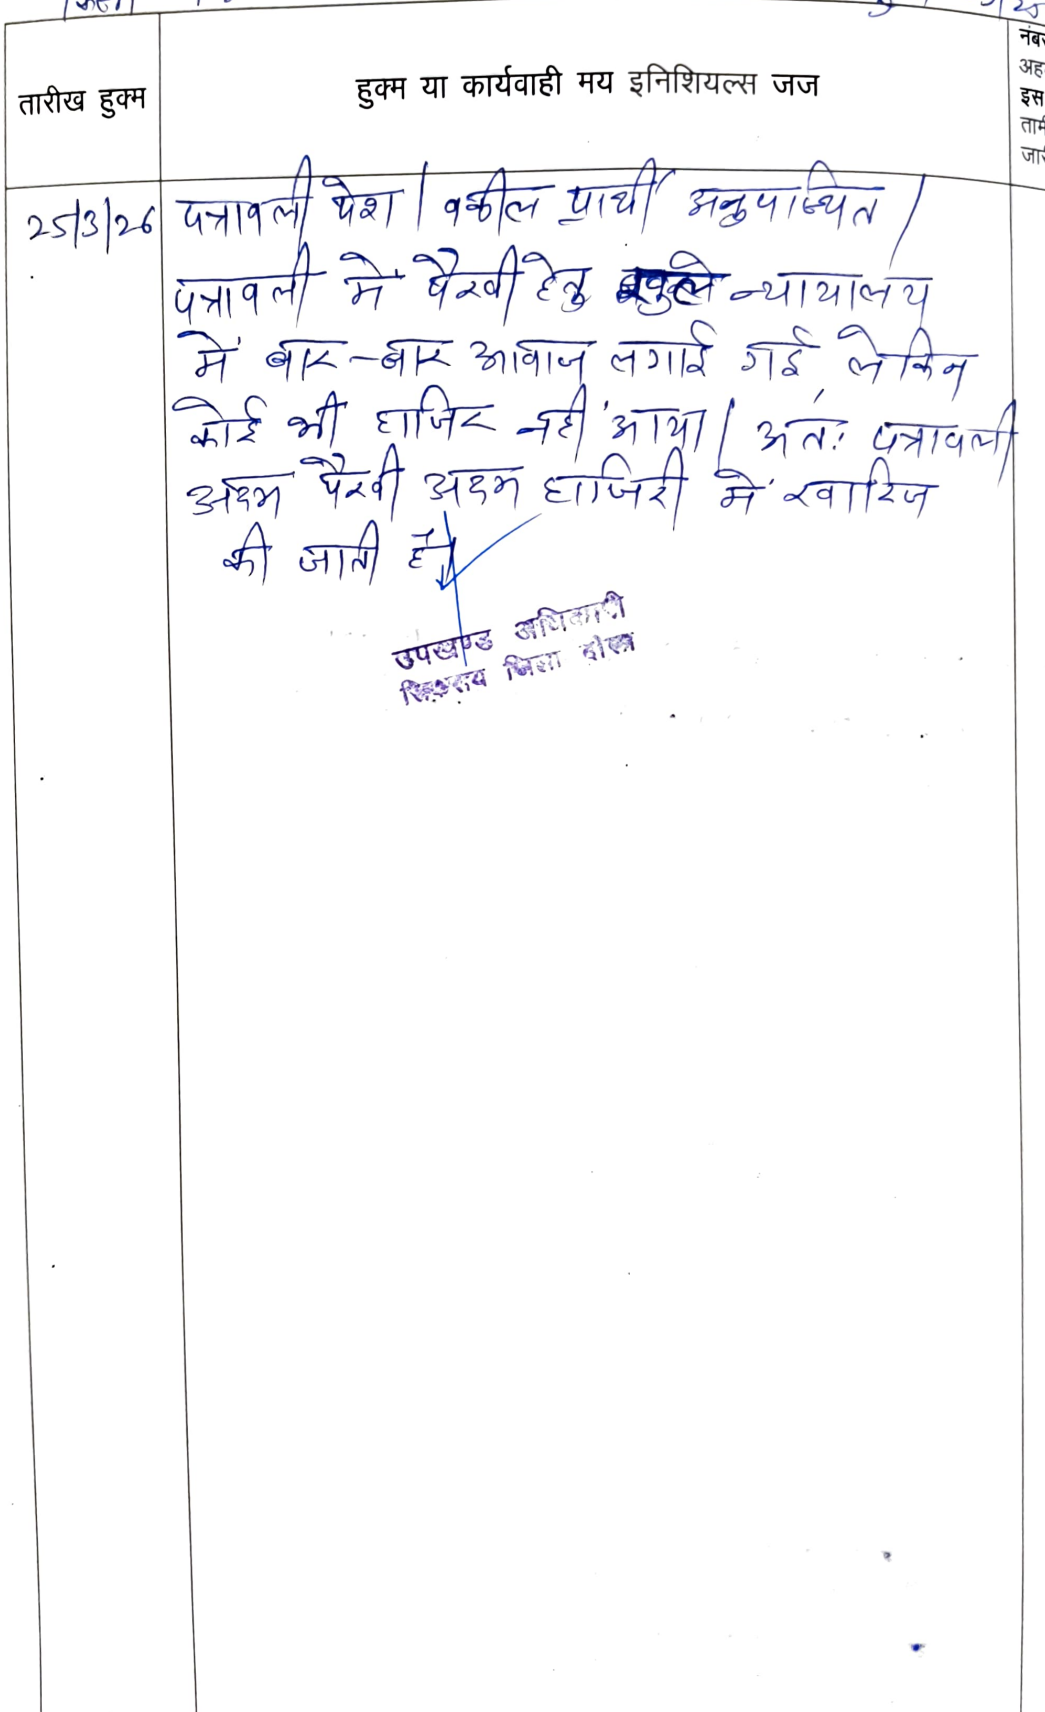 तारीख हुक्म
हुक्म या कार्यवाही मय इनिशियल्स जज
नंबर
अह
इस
ताम
जार
25/3/26 पत्रावली पेश। वकील प्रार्थी अनुपस्थित।
पत्रावली में पैरवी हेतु खुले न्यायालय
में बार-बार आवाज लगाई गई, लेकिन
कोई भी हाजिर नहीं आया। अतः पत्रावली
अदम पैरवी अदम हाजिरी में खारिज
की जाती है।
उपखण्ड अधिकारी
सिकराय जिला दौसा